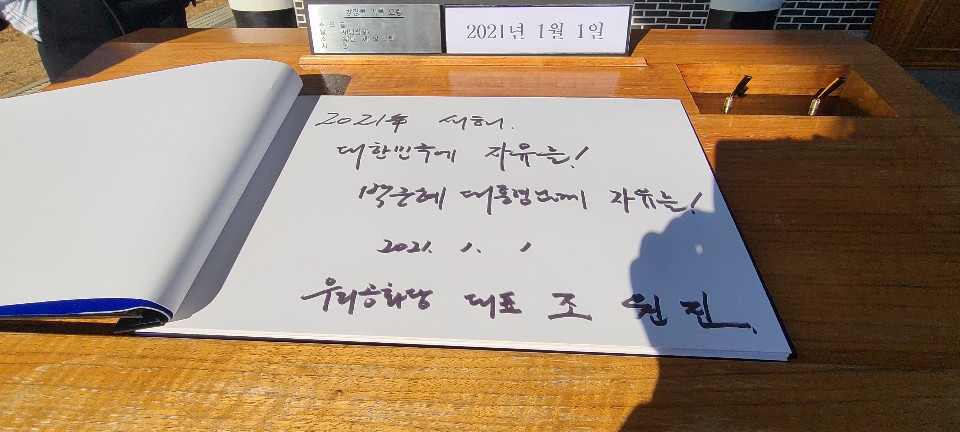 방명록 기록 요령
2021년 1월 1일
2021年 새해.
대한민국에 자유를!
박근혜 대통령님께 자유를!
2021. 1. 1
우리공화당 대표 조원진.